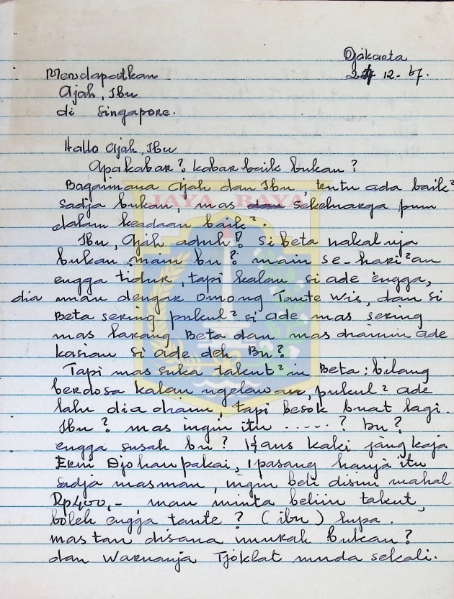 Djakarta
27 12-67.
Mendapatkan
Ajah, Ibu
di Singapore.
Hallo Ajah, Ibu
Apakabar? kabar baik bukan?
Bagaimana Ajah dan Ibu, tentu ada baik²
sadja bukan, mas dan sekeluarga pun
dalam keadaan baik².
JAYA RAYA
Ibu, Ajah aduh? si beta nakalnja
bukan main bu? main se-hari²an
engga tidur, tapi kalau si ade engga,
dia mau dengar omong Tante Wis, dan si
Beta sering pukul² si ade mas sering
mas larang Beta dan mas ade
kasian si ade deh Bu?
Tapi mas suka takut²in Beta: bilang
berdosa kalau ngelawan, pukul² ade
lalu dia diam, tapi besok buat lagi.
Ibu? mas ingin itu .....? bu?
engga susah bu? kaus kaki jang kaja
Erni Djohan pakai, 1 pasang hanja itu
sadja mas mau, ingin beli disini mahal
Rp400,- mau minta beliin takut,
boleh engga tante? (ibu) lupa.
mas tau disana murah bukan?
dan Warnanja Tjoklat muda sekali.